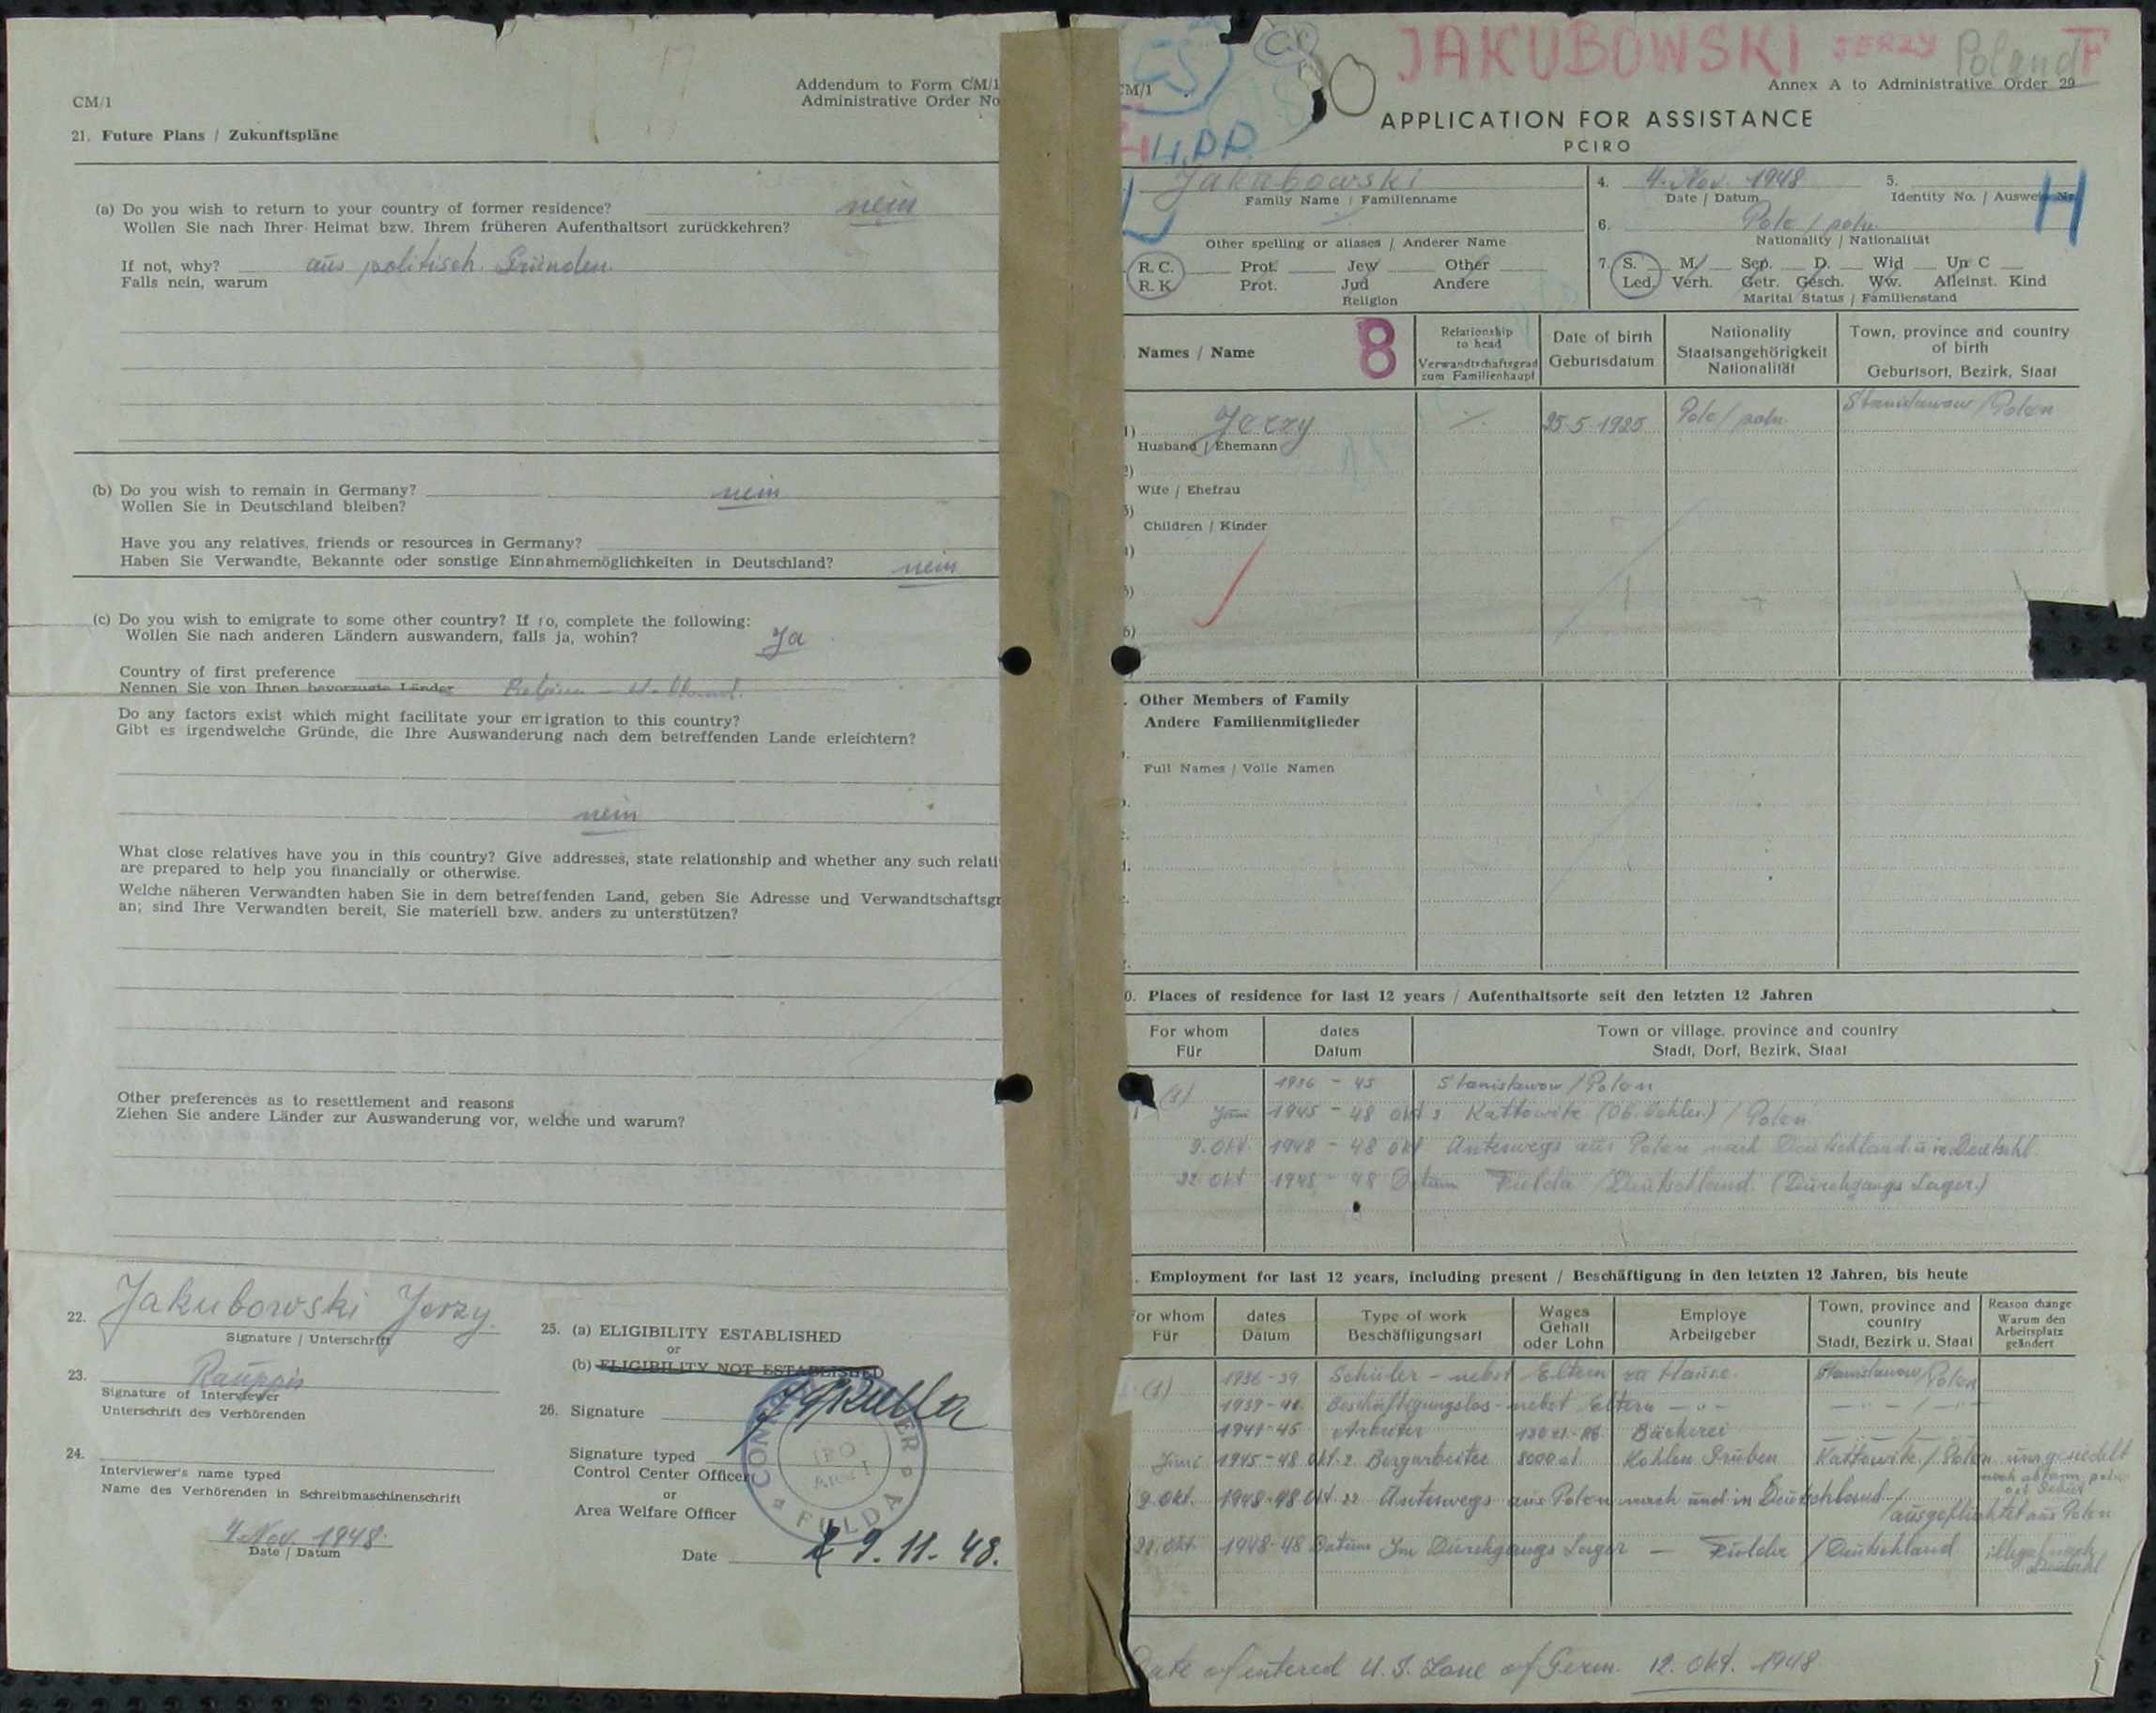 CM/1
Addendum to Form CM/1
Administrative Order No
21. Future Plans / Zukunftspläne
(a) Do you wish to return to your country of former residence? nein
Wollen Sie nach Ihrer Heimat bzw. Ihrem früheren Aufenthaltsort zurückkehren?
If not, why? aus politisch. Gründen.
Falls nein, warum
(b) Do you wish to remain in Germany? nein
Wollen Sie in Deutschland bleiben?
Have you any relatives, friends or resources in Germany?
Haben Sie Verwandte, Bekannte oder sonstige Einnahmemöglichkeiten in Deutschland? nein
(c) Do you wish to emigrate to some other country? If so, complete the following:
Wollen Sie nach anderen Ländern auswandern, falls ja, wohin? Ja
Country of first preference
Nennen Sie von Ihnen bevorzugte Länder Belgien - Holland.
Do any factors exist which might facilitate your emigration to this country?
Gibt es irgendwelche Gründe, die Ihre Auswanderung nach dem betreffenden Lande erleichtern?
nein
What close relatives have you in this country? Give addresses, state relationship and whether any such relati
are prepared to help you financially or otherwise.
Welche näheren Verwandten haben Sie in dem betreffenden Land, geben Sie Adresse und Verwandtschaftsgr
an; sind Ihre Verwandten bereit, Sie materiell bzw. anders zu unterstützen?
Other preferences as to resettlement and reasons
Ziehen Sie andere Länder zur Auswanderung vor, welche und warum?
22. Jakubowski Jerzy.
Signature / Unterschrift
23.
Signature of Interviewer
Unterschrift des Verhörenden
24.
Interviewer's name typed
Name des Verhörenden in Schreibmaschinenschrift
4. Nov. 1948.
Date / Datum
25. (a) ELIGIBILITY ESTABLISHED
or
(b) ELIGIBILITY NOT ESTABLISHED
26. Signature
Signature typed
Control Center Officer
or
Area Welfare Officer
IRO
Area 1
FULDA
Date 29. 11. 48.
JAKUBOWSKI JERZY Poland F
CM/1
Annex A to Administrative Order 29
APPLICATION FOR ASSISTANCE
PCIRO
Jakubowski
Family Name / Familienname
4. 4. Nov. 1948
Date / Datum
5.
Identity No. / Ausweis Nr.
H
Other spelling or aliases / Anderer Name
6. Pole / poln.
Nationality / Nationalität
R. C. Prot. Jew Other
R. K. Prot. Jud Andere
Religion
7. S. M. Sep. D. Wid Un C
Led. Verh. Getr. Gesch. Ww. Alleinst. Kind
Marital Status / Familienstand
Names / Name
8
Relationship to head
Verwandtschaftsgrad zum Familienhaupt
Date of birth
Geburtsdatum
Nationality
Staatsangehörigkeit
Nationalität
Town, province and country of birth
Geburtsort, Bezirk, Staat
1) Jerzy 25.5.1925 Pole / poln. Stanislawow / Polen
Husband / Ehemann
Wife / Ehefrau
Children / Kinder
Other Members of Family
Andere Familienmitglieder
Full Names / Volle Namen
0. Places of residence for last 12 years / Aufenthaltsorte seit den letzten 12 Jahren
For whom
Für
dates
Datum
Town or village, province and country
Stadt, Dorf, Bezirk, Staat
(1) 1936 - 45 Stanislawow / Polen
Juni 1945 - 48 Okt Kattowitz / Polen
9. Okt. 1948 - 48 Okt Unterwegs aus Polen nach Deutschland u. in Deutschl.
22 Okt 1948 - 48 Datum Fulda / Deutschland. (Durchgangs Lager.)
. Employment for last 12 years, including present / Beschäftigung in den letzten 12 Jahren, bis heute
For whom
Für
dates
Datum
Type of work
Beschäftigungsart
Wages
Gehalt
oder Lohn
Employe
Arbeitgeber
Town, province and country
Stadt, Bezirk u. Staat
Reason change
Warum den
Arbeitsplatz
geändert
(1) 1936-39 Schüler - nebst Eltern zu Hause. Stanislawow / Polen
1939-41 Beschäftigungslos - nebst Eltern - " -
1941-45 Arbeiter Bäckerei
Juni 1945-48 Okt. Bergarbeiter 8000 zl Kohlen Gruben Kattowitz / Polen umgesiedelt
9 Okt. 1948-48 Okt 22 Unterwegs aus Polen nach und in Deutschland / ausgeflüchtet aus Polen
22. Okt. 1948-48 Datum Im Durchgangs Lager - Fulda / Deutschland illegal nach Deutschl
Date of entered U.S. Zone of Germ. 12. Okt. 1948